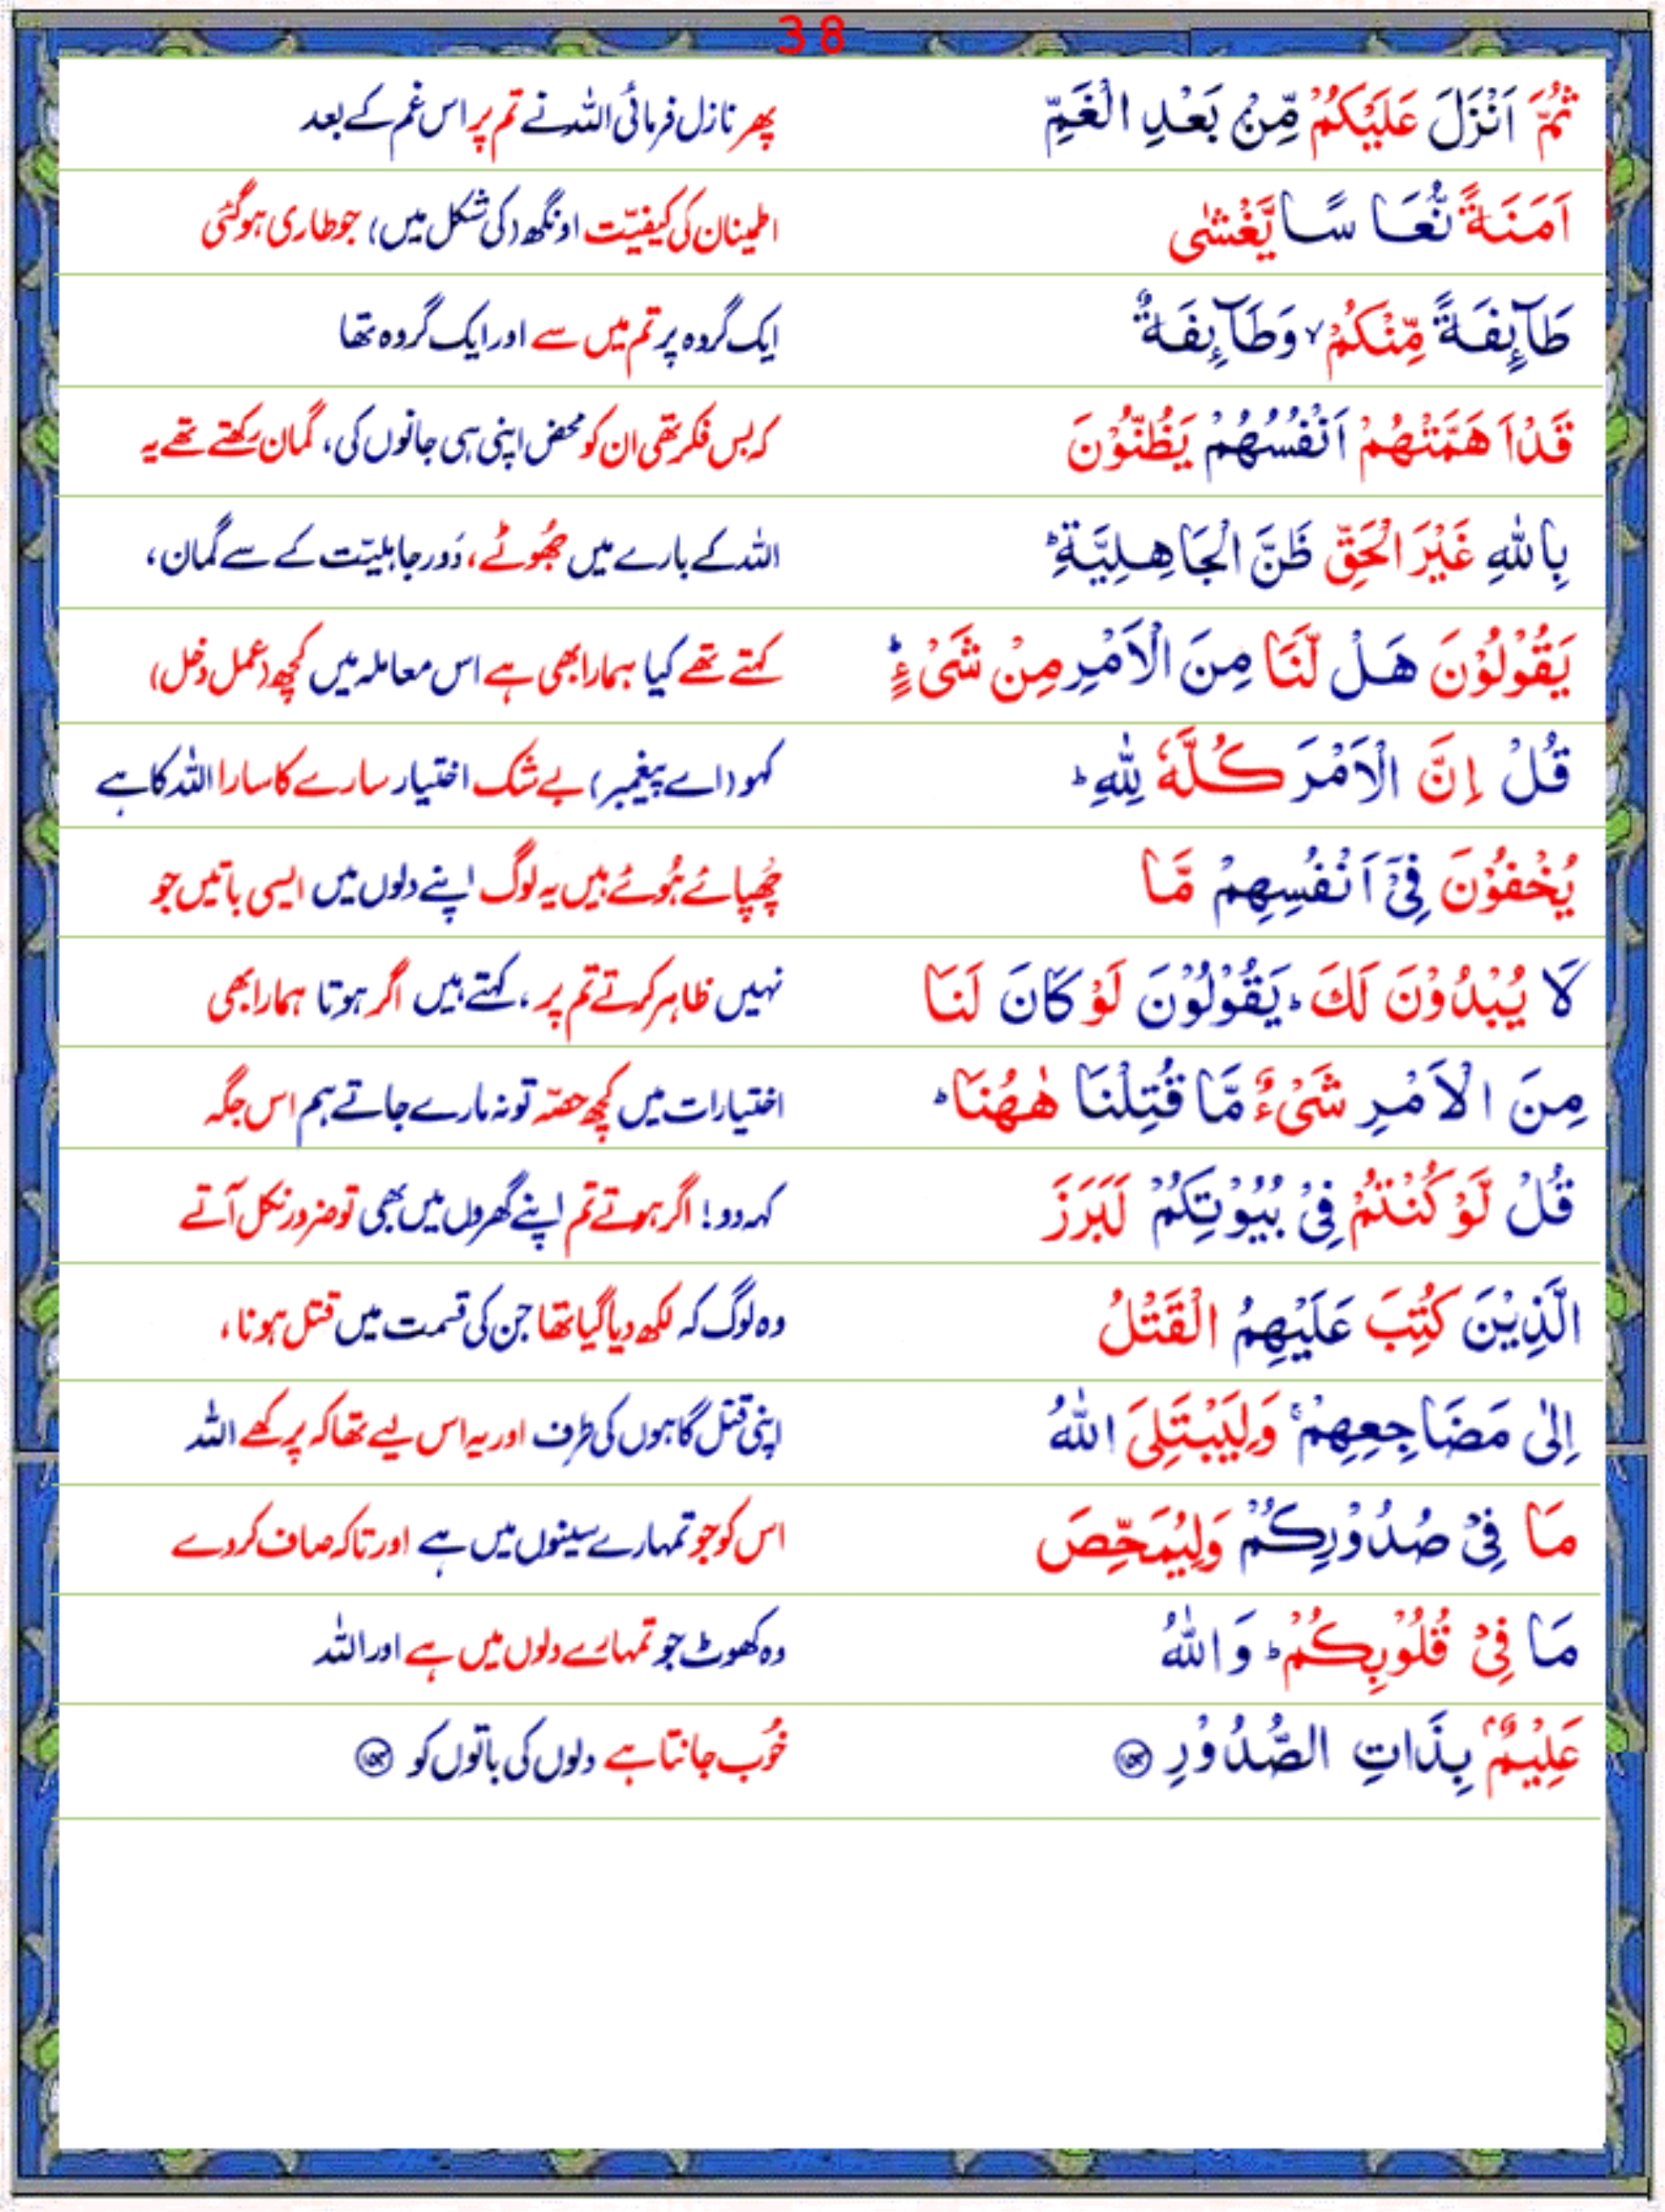 38
ثُمَّ اَنْزَلَ عَلَيْكُمْ مِّنْۢ بَعْدِ الْغَمِّ
پھر نازل فرمائی اللہ نے تم پر اس غم کے بعد
اَمَنَةً نُّعَا سًا يَّغْشٰى
اطمینان کی کیفیّت اونگھ (کی شکل میں) جو طاری ہوگئی
طَآئِفَةً مِّنْكُمْ ۙ وَطَآئِفَةٌ
ایک گروہ پر تم میں سے اور ایک گروہ تھا
قَدْ اَهَمَّتْهُمْ اَنْفُسُهُمْ يَظُنُّوْنَ
کہ بس فکر تھی ان کو محض اپنی ہی جانوں کی، گمان رکھتے تھے یہ
بِاللّٰهِ غَيْرَ الْحَقِّ ظَنَّ الْجَاهِلِيَّةِ ؕ
اللہ کے بارے میں جُھوٹے، دَور جاہلیّت کے سے گمان،
يَقُوْلُوْنَ هَلْ لَّنَا مِنَ الْاَمْرِ مِنْ شَىْءٍ ؕ
کہتے تھے کیا ہمارا بھی ہے اس معاملہ میں کچھ (عمل دخل)
قُلْ اِنَّ الْاَمْرَ كُلَّهٗ لِلّٰهِ ؕ
کہو (اے پیغمبر) بے شک اختیار سارے کا سارا اللہ کا ہے
يُخْفُوْنَ فِىْۤ اَنْفُسِهِمْ مَّا
چُھپائے ہُوئے ہیں یہ لوگ اپنے دلوں میں ایسی باتیں جو
لَا يُبْدُوْنَ لَكَ ؕ يَقُوْلُوْنَ لَوْ كَانَ لَنَا
نہیں ظاہر کرتے تم پر، کہتے ہیں اگر ہوتا ہمارا بھی
مِنَ الْاَمْرِ شَىْءٌ مَّا قُتِلْنَا هٰهُنَا ؕ
اختیارات میں کچھ حصّہ تو نہ مارے جاتے ہم اس جگہ
قُلْ لَّوْ كُنْتُمْ فِىْ بُيُوْتِكُمْ لَبَرَزَ
کہہ دو! اگر ہوتے تم اپنے گھروں میں بھی تو ضرور نکل آتے
الَّذِيْنَ كُتِبَ عَلَيْهِمُ الْقَتْلُ
وہ لوگ کہ لکھ دیا گیا تھا جن کی قسمت میں قتل ہونا،
اِلٰى مَضَاجِعِهِمْ ۚ وَلِيَبْتَلِىَ اللّٰهُ
اپنی قتل گاہوں کی طرف اور یہ اس لیے تھا کہ پرکھے اللہ
مَا فِىْ صُدُوْرِكُمْ وَلِيُمَحِّصَ
اس کو جو تمہارے سینوں میں ہے اور تاکہ صاف کردے
مَا فِىْ قُلُوْبِكُمْ ؕ وَ اللّٰهُ
وہ کھوٹ جو تمہارے دلوں میں ہے اور اللہ
عَلِيْمٌۢ بِذَاتِ الصُّدُوْرِ ۝۱۵۴
خُوب جانتا ہے دلوں کی باتوں کو ۝۱۵۴